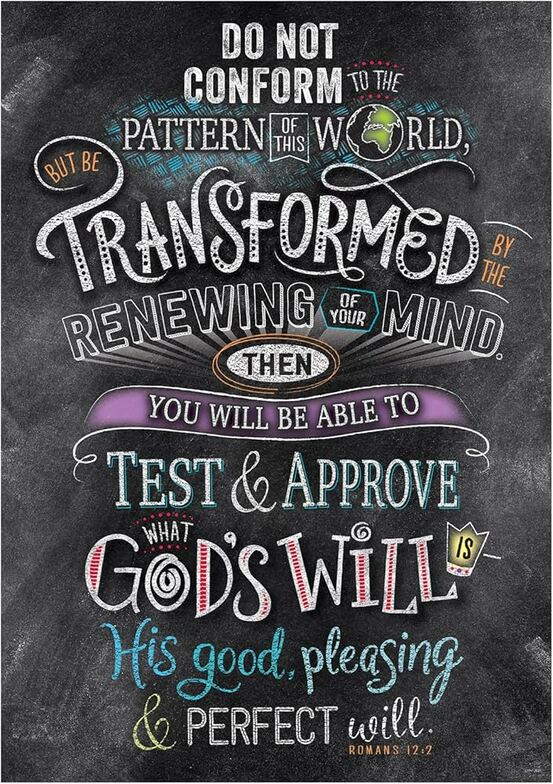 DO NOT
CONFORM TO THE
PATTERN OF THIS WORLD,
BUT BE
TRANSFORMED
BY THE
RENEWING OF YOUR MIND.
THEN
YOU WILL BE ABLE TO
TEST & APPROVE
WHAT
GOD'S WILL IS
His good, pleasing
& PERFECT will.
ROMANS 12:2